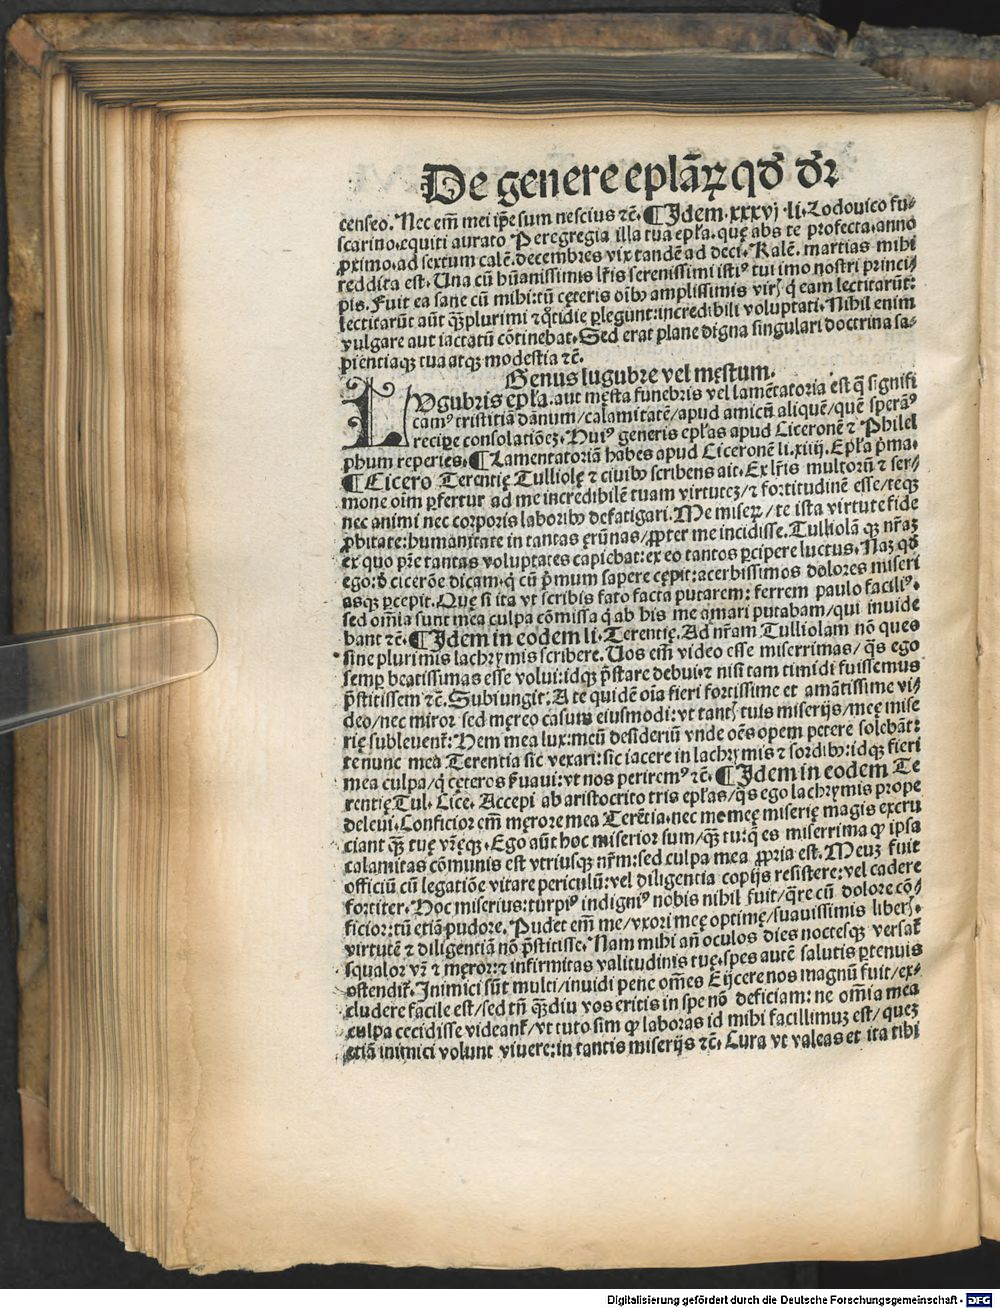 De genere eplāꝝ qḋ ḋꝛ
censeo. Nec em̄ mei ip̄e sum nescius ⁊c̄. ¶Idem. xxxvj. li. Lodouico fu⸗
scarino. equiti aurato Peregregia illa tua epła. quę abs te profecta. anno
ꝓximo. ad sextum calē. decembres vix tandē ad deci. Kalē. martias mihi
reddita est. Una cū hūanissimis lr̄is serenissimi istiꝰ tui imo nostri princi⸗
pis. Fuit ea sane cū mihi: tū cęteris oībꝰ amplissimis virꝭ q̇ eam lectitarūt:
lectitarūt aūt qꝫplurimi ⁊ q̊tidie ꝑlegunt: incredibili voluptati. Nihil enim
vulgare aut iactatū cōtinebat. Sed erat plane digna singulari doctrina sa⸗
pientiaqꝫ tua atqꝫ modestia ⁊c̄.
Genus lugubre vel męstum.
LUgubris epła. aut męsta funebris vel lamētatoria est q̄ signifi
camꝰ tristitiā dānum/calamitatē/apud amicū aliquē/quē sperāꝰ
recipe consolatiōeꝫ. Huiꝰ generis epłas apud Ciceronē ⁊ Philel
phum reperies. ¶Lamentatoriā habes apud Ciceronē li. xiiij. Epła p̄ma.
¶Cicero Terentię Tulliolę ⁊ ciuibꝰ scribens ait. Ex lr̄is multorū ⁊ ser⸗
mone oīm ꝑfertur ad me incredibilē tuam virtuteꝫ/⁊ fortitudinē esse/teqꝫ
nec animi nec corporis laboribꝰ defatigari. Me miseꝝ/te ista virtute fide
ꝓbitate: humanitate in tantas ęrūnas/ꝓpter me incidisse. Tulliolā qꝫ nr̄aꝫ
ex quo pr̄e tantas voluptates capiebat: ex eo tantos ꝑcipere luctus. Naꝫ qḋ
ego: ḋ cicerōe dicam. q̇ cū p̄mum sapere cępit: acerbissimos dolores miseri
asqꝫ ꝑcepit. Quę si ita vt scribis fato facta putarem: ferrem paulo faciliꝰ.
sed om̄ia sunt mea culpa cōmissa q̇ ab his me amari putabam/qui inuide
bant ⁊c̄. ¶Idem in eodem li. Terentię. Ad nr̄am Tulliolam nō queo
sine plurimis lachrymis scribere. Uos em̄ video esse miserrimas/q̊s ego
semp beatissimas esse volui: idqꝫ p̄stare debui: ⁊ nisi tam timidi fuissemus
p̄stitissem ⁊c̄. Subiungit. A te quidē oīa fieri fortissime et amātissime vi⸗
deo/nec miror sed męreo casum eiusmodi: vt tantꝭ tuis miserijs/meę mise
rię subleuent᷑: Hem mea lux: meū desideriū vnde oēs opem petere solebāt:
te nunc mea Terentia sic vexari: sic iacere in lachrymis ⁊ sordibꝰ: idqꝫ fieri
mea culpa/q̇ cęteros ẜuaui: vt nos periremꝰ ⁊c̄. ¶Idem in eodem Te
rentię Tul. Cice. Accepi ab aristocrito tris epłas/q̊s ego lachrymis prope
deleui. Conficior em̄ męrore mea Terētia. nec me meę miserię magis excru
ciant qꝫ tuę vr̄ęqꝫ. Ego aūt hoc miserior sum/qꝫ tu: q̇ es miserrima ꝙ ipsa
calamitas cōmunis est vtriusqꝫ nr̄m: sed culpa mea ꝓpria est. Meuꝫ fuit
officiū cū legatiōe vitare periculū: vel diligentia copijs resistere: vel cadere
fortiter. Hoc miserius: turpiꝰ indigniꝰ nobis nihil fuit/q̄re cū dolore cō⸗
ficior: tū etiā pudore. Pudet em̄ me/vxori meę optimę/suauissimis liberꝭ.
virtutē ⁊ diligentiā nō p̄stitisse. Nam mihi añ oculos dies noctesqꝫ versat᷑
squalor vr̄ ⁊ męror: ⁊ infirmitas valitudinis tuę. spes autē salutis ꝑtenuis
ostendit᷑. Inimici sūt multi/inuidi pene om̄es Eijcere nos magnū fuit/ex⸗
cludere facile est/sed tn̄ qꝫdiu vos eritis in spe nō deficiam: ne om̄ia mea
culpa cecidisse videant᷑/vt tuto sim ꝙ laboras id mihi facillimuꝫ est/queꝫ
etiā inimici volunt viuere: in tantis miserijs ⁊c̄. Cura vt valeas et ita tibi
Digitalisierung gefördert durch die Deutsche Forschungsgemeinschaft - DFG